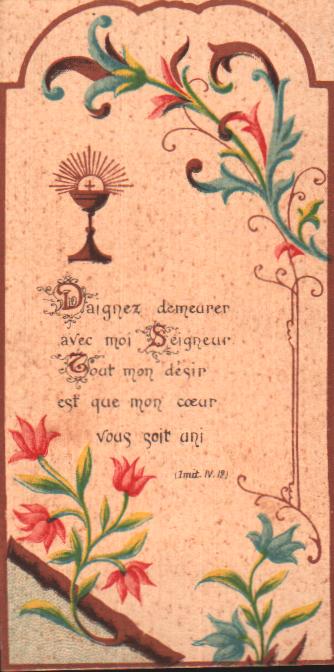 Daignez demeurer
avec moi Seigneur
Tout mon désir
est que mon cœur
vous soit uni
(Imit. IV. 12)